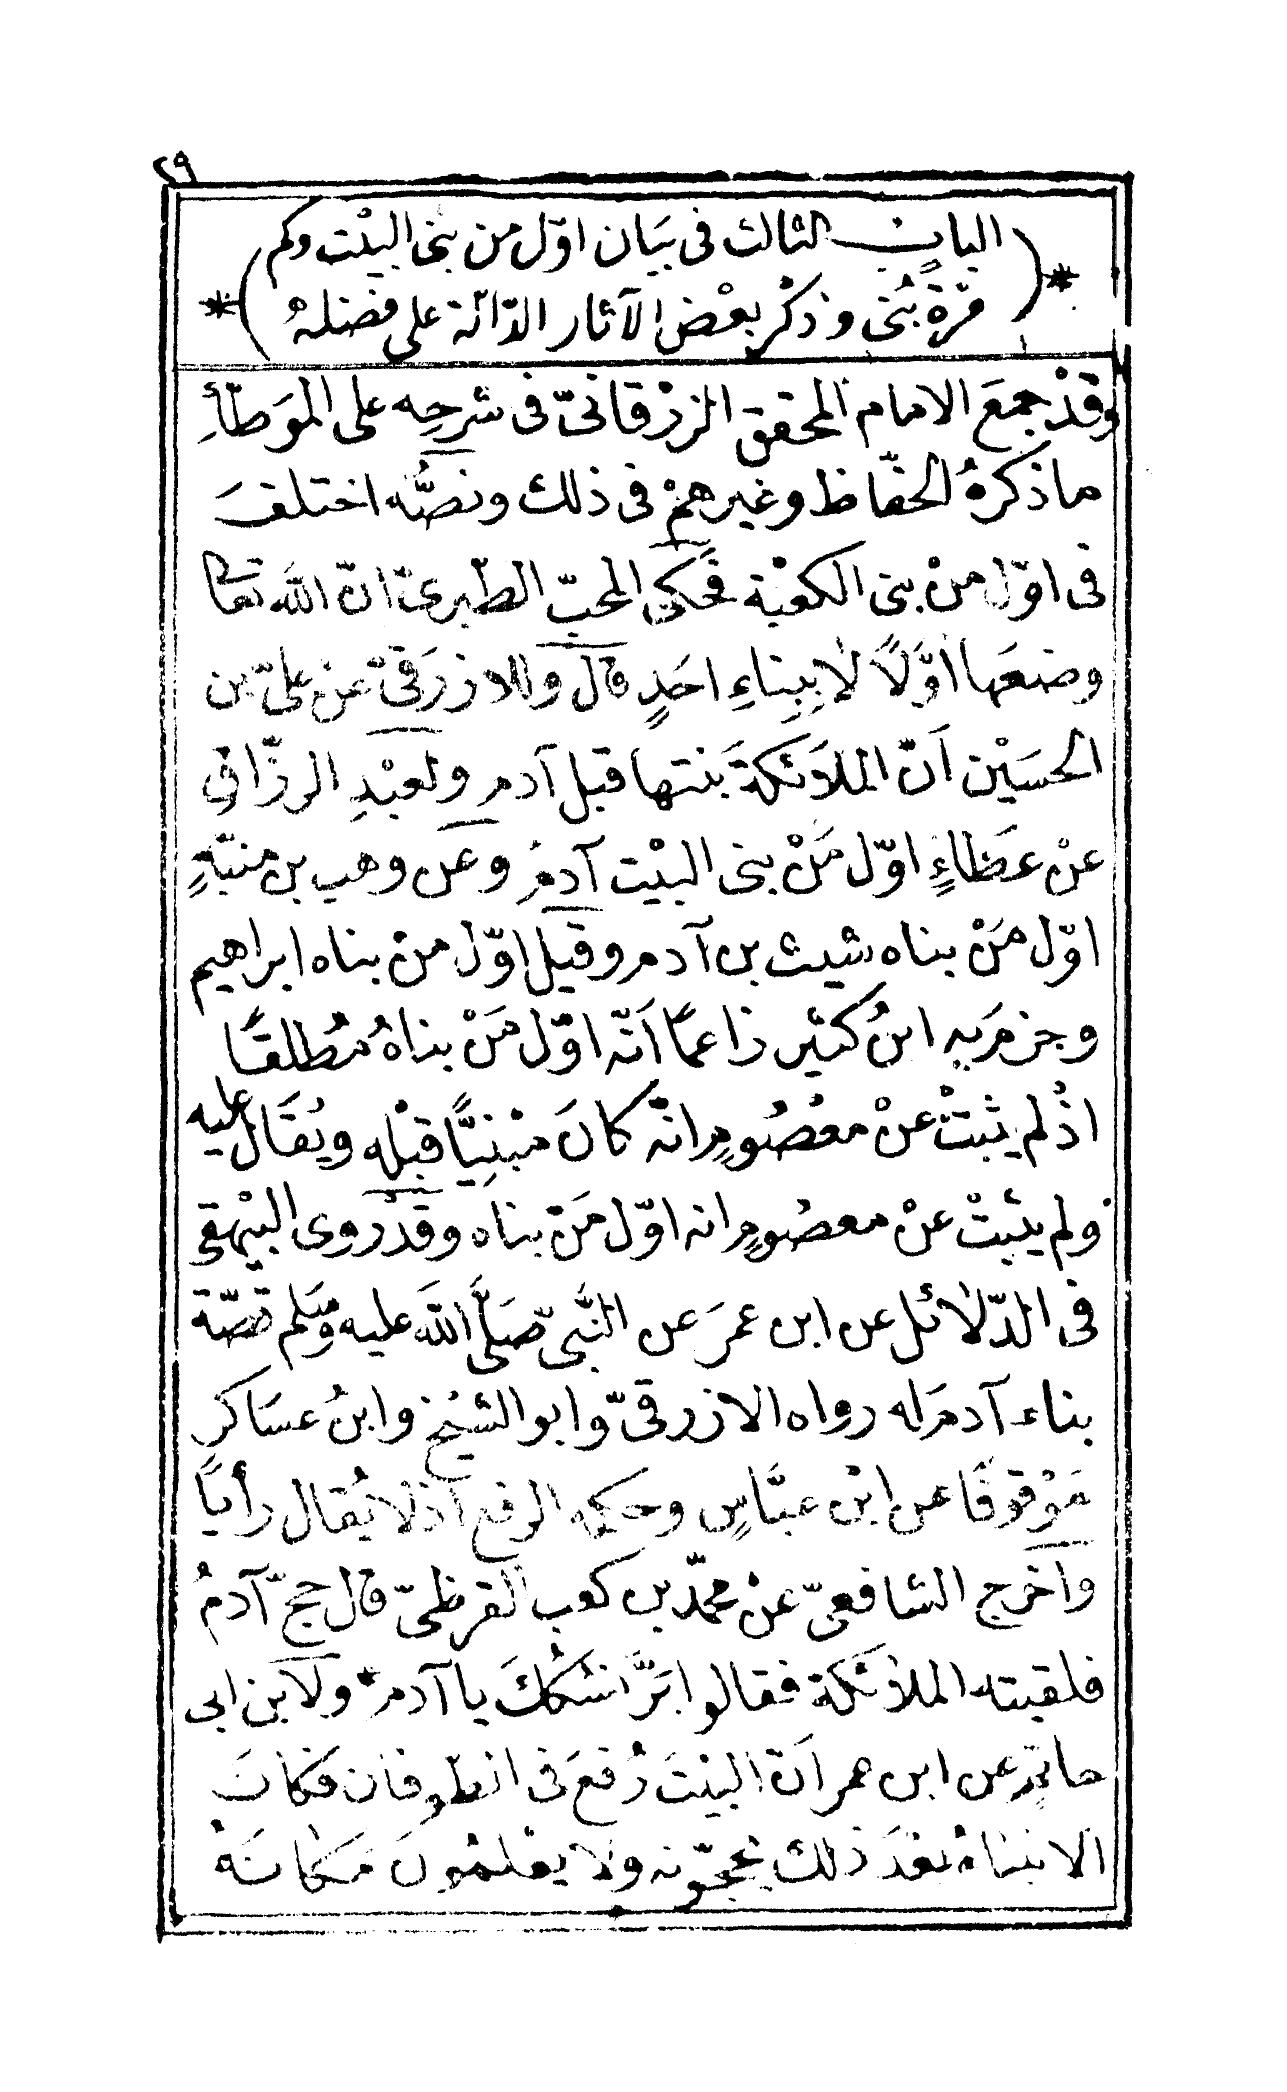 ٢٩
*( الباب الثالث فى بيَان اوّل من بنى البيْت وكم
مَرّةً بُنى وذكْر بعْض الآثار الدّالّة على فضله )*
وقدْ جمعَ الامام المحقق الزرْقانىّ فى شرحِه على الموَطّأِ
ما ذكرهُ الحفّاظ وغيرهمْ فى ذلك ونصُّه اختلفَ
فى اوّل منْ بنى الكعْبَة فحَكى المحبّ الطّبرىّ انّ اللّه تعا
وضعَها اوَّلًا لا بِبِناءِ احَدٍ قال وللازرَقىّ عنْ علىّ بن
الحسَيْن اَنّ الملاَئكةَ بَنتها قبل آدم ولعبْدِ الرزّاق
عنْ عَطاءٍ اوّل مَنْ بنى البيْت آدمُ وعَن وهب بن منبّهٍ
اوّل مَنْ بناه شيث بن آدم وقيل اوّل منْ بناه ابراهيم
وجزمَ به ابنُ كثير زاعمًا اَنّه اوّل مَنْ بناهُ مُطلقًا
اذْ لم يثبتْ عنْ معْصُومٍ انّه كانَ مبْنِيًّا قبْله ويُقَال عليه
ولم يثبتْ عنْ معصُومٍ انه اوّل مَنْ بناه وقدْ روى البيْهقى
فى الدّلائل عن ابن عمرَ عن النَّبىّ صَلَّى اللّهَ عليه وسَلم قصّة
بناء آدمَ له رواه الازرقىّ وابو الشيْخ وابنُ عسَاكر
مَوْقوفًا عن ابْن عبَّاسٍ وحكمه الرفع اذ لا يُقال رأيًا
واخرج الشافعىّ عنْ محمّد بن كعب القرظىّ قال حجّ آدمُ
فلقيته الملائكة فقالوا بَرَّ نسُكُكَ يا آدم * ولابن ابى
حاتمٍ عن ابن عمر اَنّ البيْتَ رُفعَ فى الطّوفان فكانَ
الانبيَاءُ بعْدَ ذلك يحجّونه ولا يعْلمُونَ مَكانَهُ